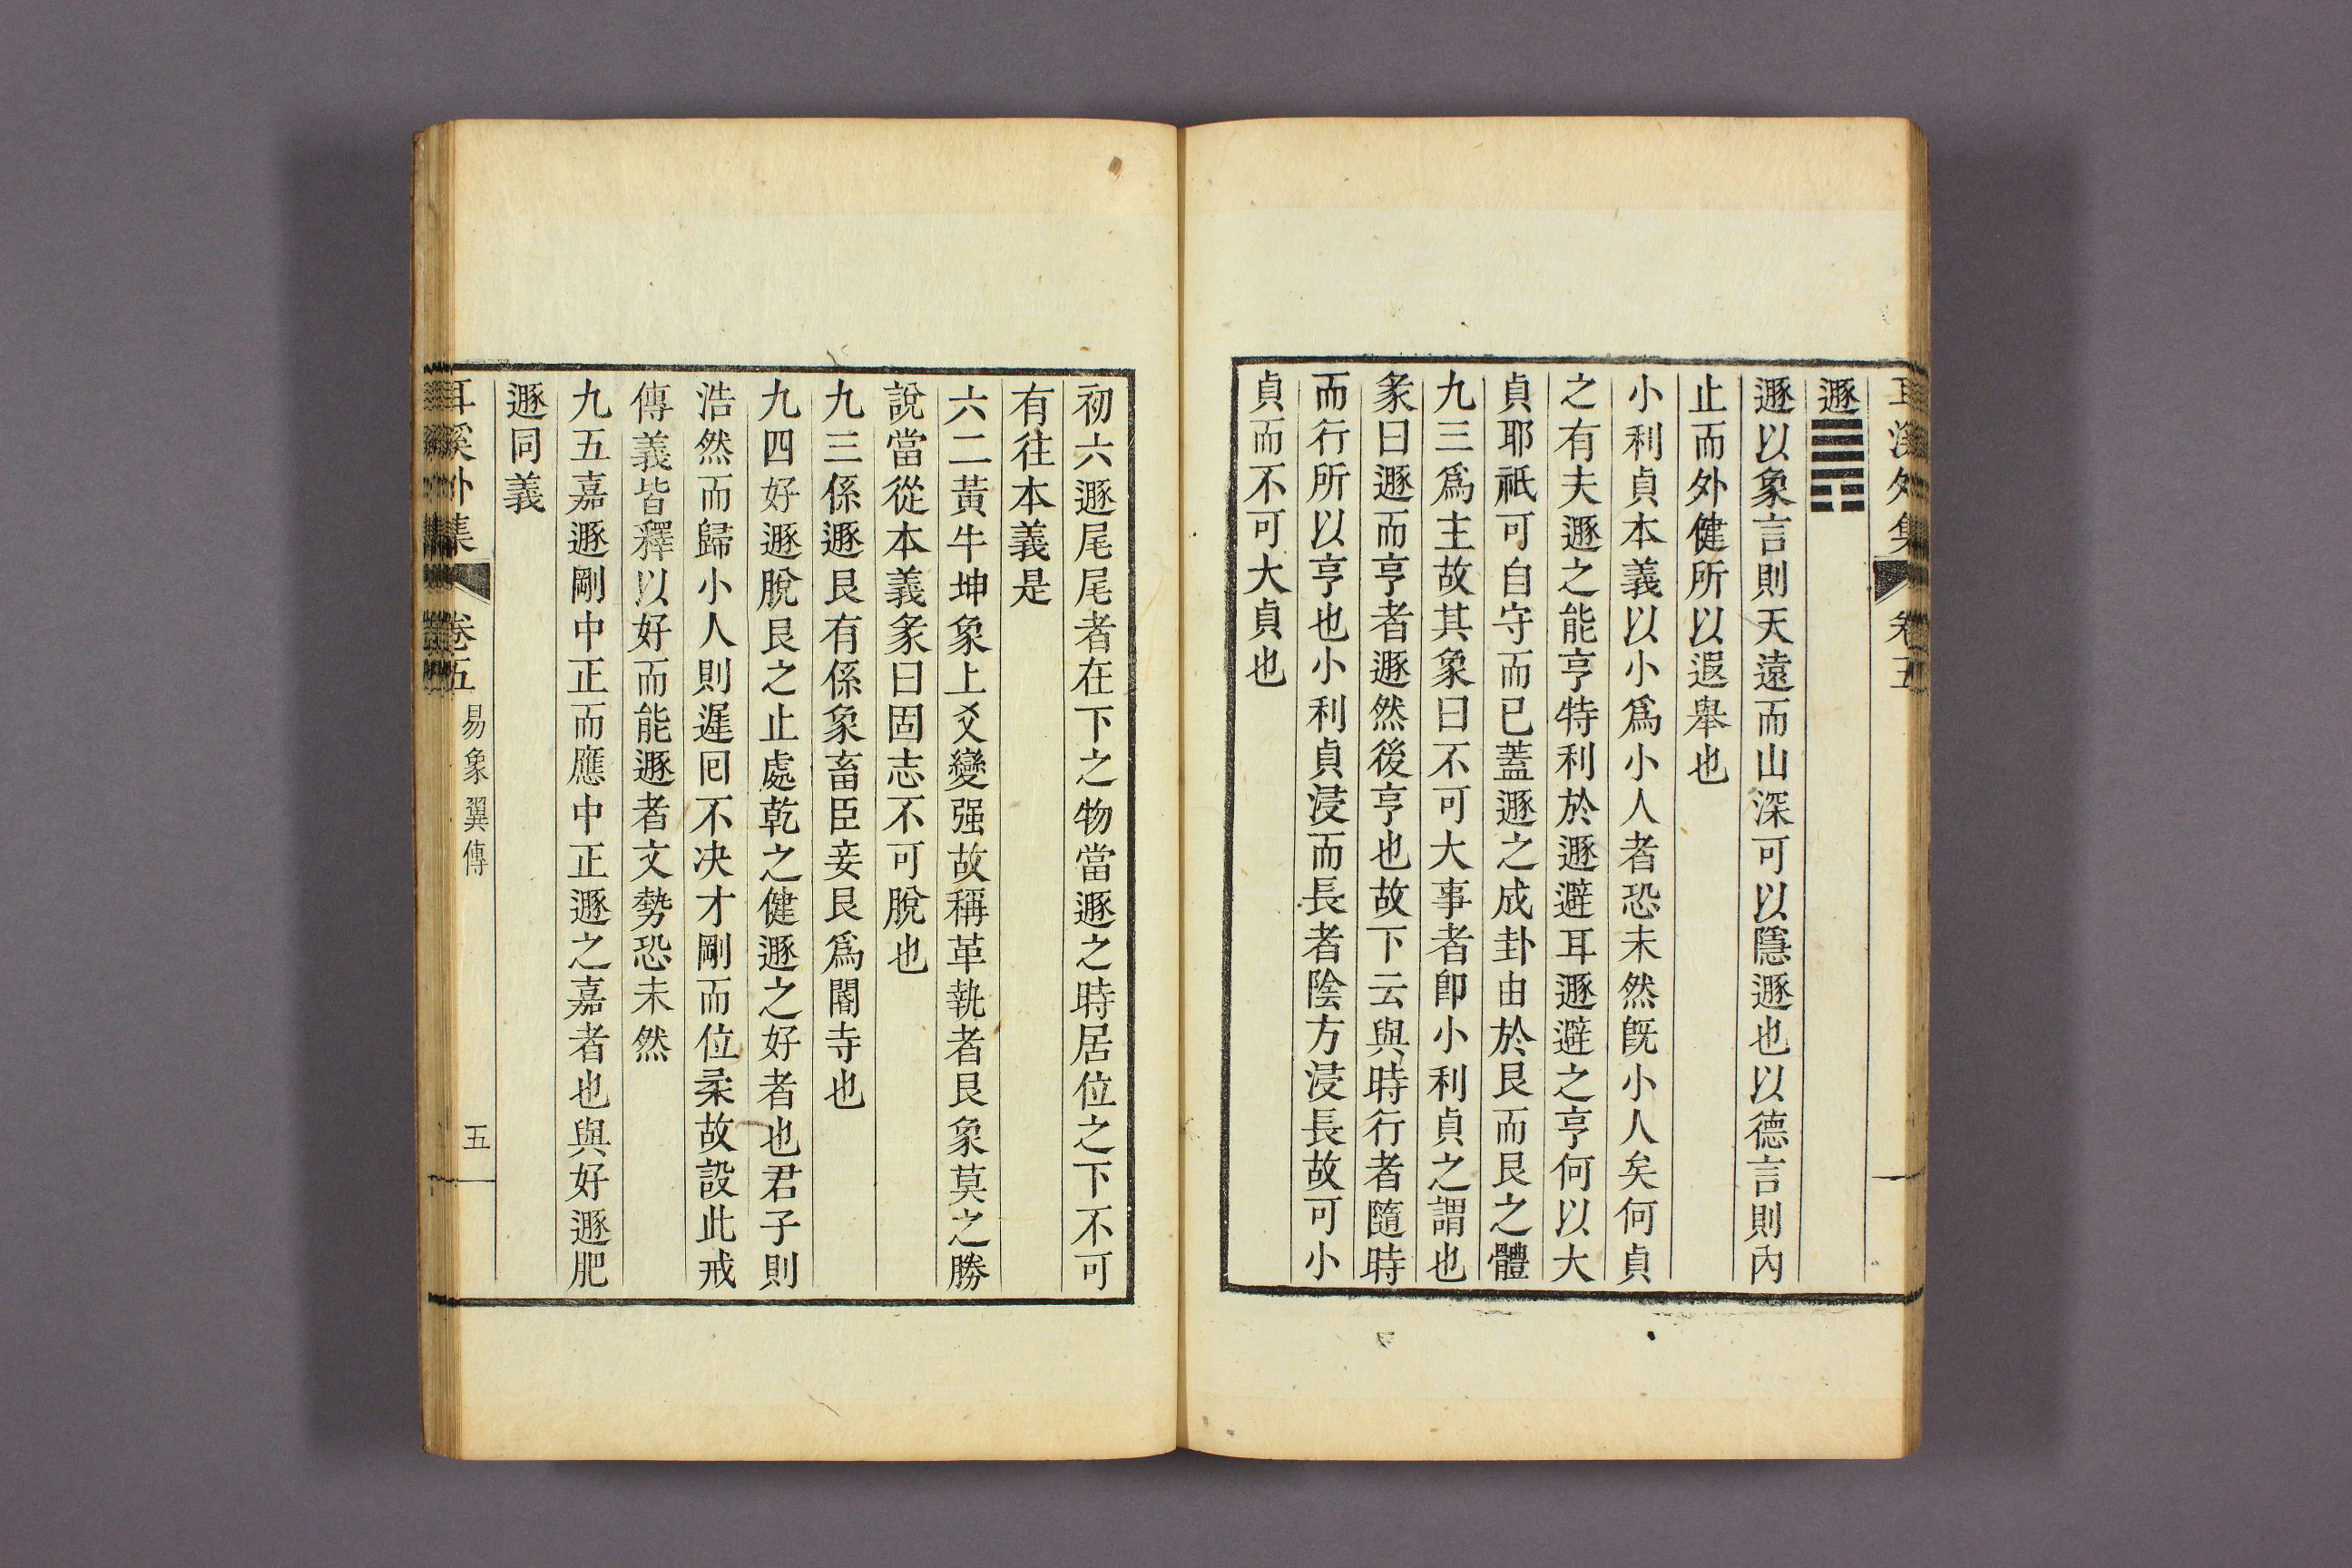 耳溪外集 卷五
遯䷠
遯以象言則天遠而山深可以隱遯也以德言則內
止而外健所以遐舉也
小利貞本義以小爲小人者恐未然旣小人矣何貞
之有夫遯之能亨特利於遯避耳遯避之亨何以大
貞耶祇可自守而已蓋遯之成卦由於艮而艮之體
九三爲主故其象曰不可大事者卽小利貞之謂也
彖曰遯而亨者遯然後亨也故下云與時行者隨時
而行所以亨也小利貞浸而長者陰方浸長故可小
貞而不可大貞也
初六遯尾尾者在下之物當遯之時居位之下不可
有往本義是
六二黃牛坤象上爻變强故稱革執者艮象莫之勝
說當從本義彖曰固志不可脫也
九三係遯艮有係象畜臣妾艮爲閽寺也
九四好遯脫艮之止處乾之健遯之好者也君子則
浩然而歸小人則遲回不决才剛而位柔故設此戒
傳義皆釋以好而能遯者文勢恐未然
九五嘉遯剛中正而應中正遯之嘉者也與好遯肥
遯同義
耳溪外集 卷五 易象翼傳 五